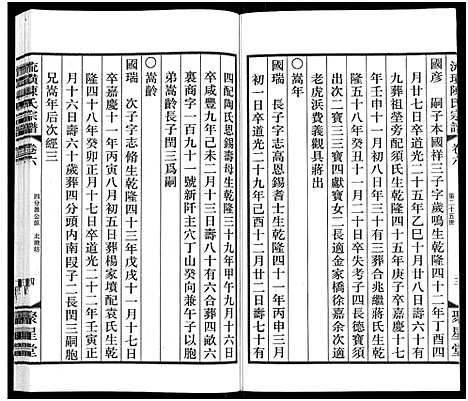 流璜陳氏宗譜 卷六
第二十五世
三
聚星堂
國彥 嗣子本國祥三子字歲鳴生乾隆四十二年丁酉四
月廿七日卒道光二十五年乙巳十月廿七日壽六十
九葬祖塋旁配須氏生乾隆四十五年庚子卒嘉慶十七
年壬申十一月初八日年三十三合葬兆繼蔣氏生乾
隆五十八年癸丑十一月二十日卒失考子四長德興
出次二寶三三寶四獻寶女二長適金港徐嘉次適
老虎浜費義觀具蔣出
國瑞 長子字志高恩錫耆士生乾隆四十一年丙申三月
初一日卒道光二十九年己酉十二月廿二日壽七十有
四配陶氏恩錫壽母生乾隆三十九年甲午九月十六日
卒咸豐九年己未二月三十日壽八十有六合葬四分
裏商字一百九十一號新阡主穴丁山癸向兼午子以同
弟嵩齡長子閏三爲嗣
○嵩齡
國瑞 次子字志脩生乾隆四十三年戊戌十一月十七日
卒嘉慶十一年丙寅八月初五日葬楊家墳配袁氏生乾
隆四十八年癸卯正月十七日卒道光二十二年壬寅正
月十六日壽六十葬四分頭內南段子二長閏三嗣胞
兄嵩年后次經三
○
流璜陳氏宗譜 卷六
四分惠公派 北廒坊
四
聚星堂